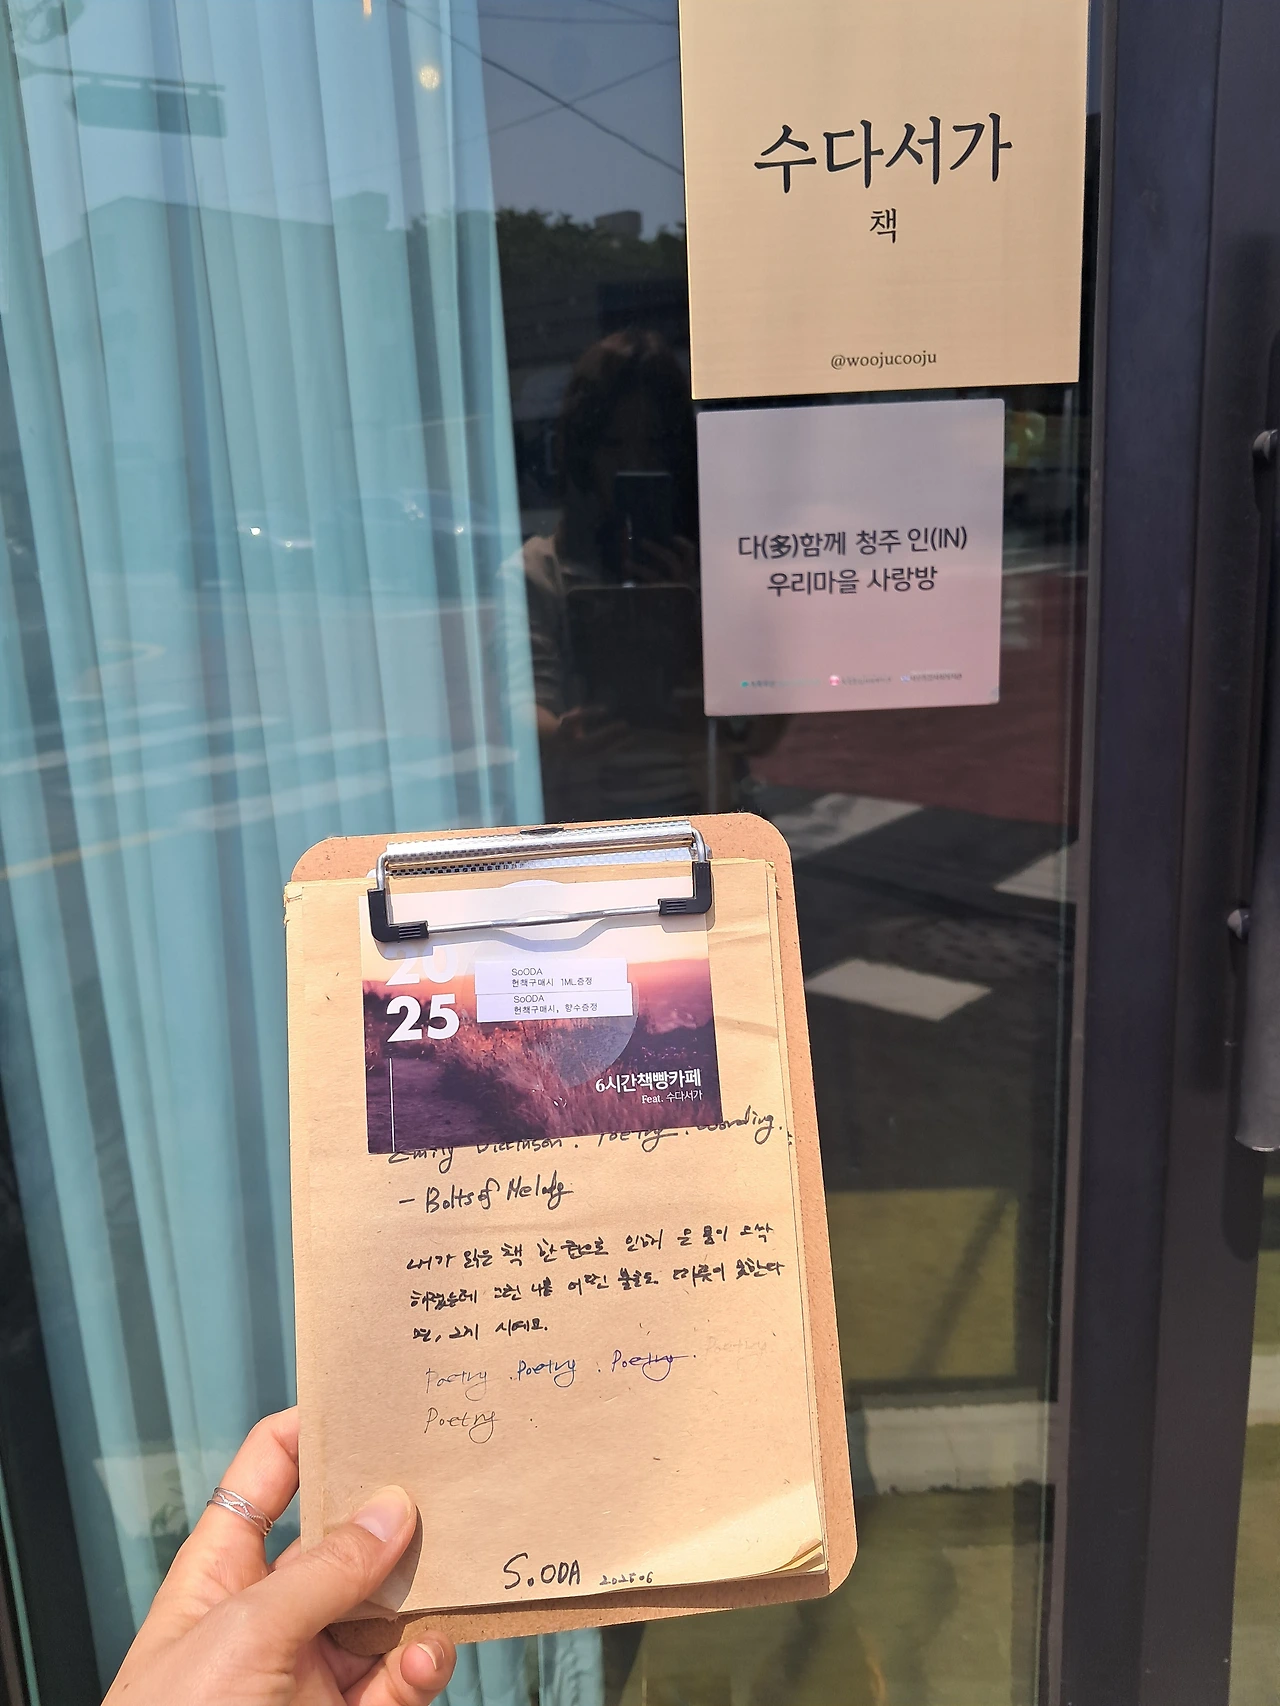 수다서가
책
@woojucooju
다(多)함께 청주 인(IN)
우리마을 사랑방
20
25
SoODA
헌책구매시 1ML증정
SoODA
헌책구매시, 향수증정
6시간책빵카페
Feat. 수다서가
Emily Dickinson. Poetry. Wording.
- Bolts of Melody
내가 읽은 책 한권으로 인해 온 몸이 오싹
해졌는데 그런 나를 어떤 불로도 따뜻이 못한다
면, 그게 시예요.
Poetry. Poetry. Poetry. Poetry.
Poetry.
S.ODA 2025.06